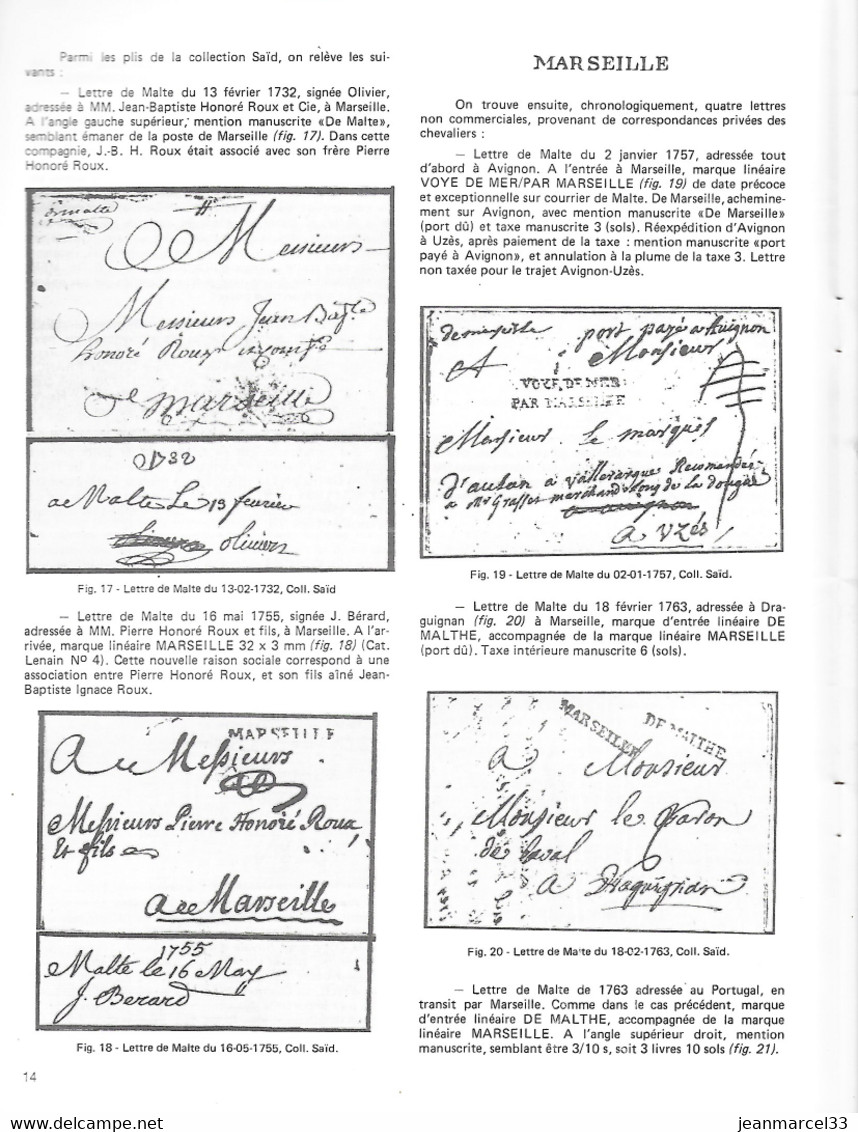 Parmi les plis de la collection Saïd, on relève les sui-
vants :
— Lettre de Malte du 13 février 1732, signée Olivier,
adressée à MM. Jean-Baptiste Honoré Roux et Cie, à Marseille.
A l'angle gauche supérieur, mention manuscrite «De Malte»,
semblant émaner de la poste de Marseille (fig. 17). Dans cette
compagnie, J.-B. H. Roux était associé avec son frère Pierre
Honoré Roux.
Messieurs
Messieurs Jean Bapte
honoré Roux et compe
a marseille
1732
a Malte Le 13 feurier
olivier
Fig. 17 - Lettre de Malte du 13-02-1732, Coll. Saïd
— Lettre de Malte du 16 mai 1755, signée J. Bérard,
adressée à MM. Pierre Honoré Roux et fils, à Marseille. A l'ar-
rivée, marque linéaire MARSEILLE 32 x 3 mm (fig. 18) (Cat.
Lenain Nº 4). Cette nouvelle raison sociale correspond à une
association entre Pierre Honoré Roux, et son fils aîné Jean-
Baptiste Ignace Roux.
MARSEILLE
A Messieurs
Messieurs Pierre Honoré Roux
Et fils
a Marseille
1755
Malte le 16 May
J. Berard
Fig. 18 - Lettre de Malte du 16-05-1755, Coll. Saïd.
14
MARSEILLE
On trouve ensuite, chronologiquement, quatre lettres
non commerciales, provenant de correspondances privées des
chevaliers :
— Lettre de Malte du 2 janvier 1757, adressée tout
d'abord à Avignon. A l'entrée à Marseille, marque linéaire
VOYE DE MER/PAR MARSEILLE (fig. 19) de date précoce
et exceptionnelle sur courrier de Malte. De Marseille, achemine-
ment sur Avignon, avec mention manuscrite «De Marseille»
(port dû) et taxe manuscrite 3 (sols). Réexpédition d'Avignon
à Uzès, après paiement de la taxe : mention manuscrite «port
payé à Avignon», et annulation à la plume de la taxe 3. Lettre
non taxée pour le trajet Avignon-Uzès.
de marseille port payé a Auignon
A Monsieur
VOYE DE MER
PAR MARSEILLE
Monsieur le marquis
d'aulan a Vallerargue Recomandée
a Mr Grasser marchand
a Vzés
Fig. 19 - Lettre de Malte du 02-01-1757, Coll. Saïd.
— Lettre de Malte du 18 février 1763, adressée à Dra-
guignan (fig. 20) à Marseille, marque d'entrée linéaire DE
MALTHE, accompagnée de la marque linéaire MARSEILLE
(port dû). Taxe intérieure manuscrite 6 (sols).
MARSEILLE DE MALTHE
a Monsieur
Monsieur le Baron
de laval
a Draguignan
Fig. 20 - Lettre de Malte du 18-02-1763, Coll. Saïd.
— Lettre de Malte de 1763 adressée au Portugal, en
transit par Marseille. Comme dans le cas précédent, marque
d'entrée linéaire DE MALTHE, accompagnée de la marque
linéaire MARSEILLE. A l'angle supérieur droit, mention
manuscrite, semblant être 3/10 s, soit 3 livres 10 sols (fig. 21).
jeanmarcel33